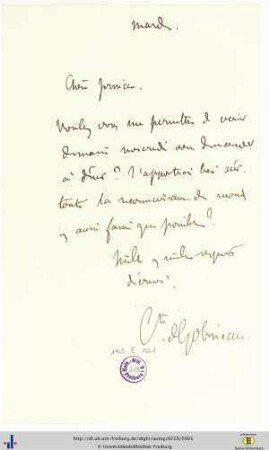 mardi.
Chère princesse.
Voulez vous me permettre de venir
demain mercredi vous demander
à dîner? J'apporterai bien sûr
toute la reconnaissance du monde
y aussi faim que possible?
Mille y mille respects
dévoués.
Cte. de Gobineau.
http://dl.ub.uni-freiburg.de/diglit/autogr0210/0001
© Universitätsbibliothek Freiburg